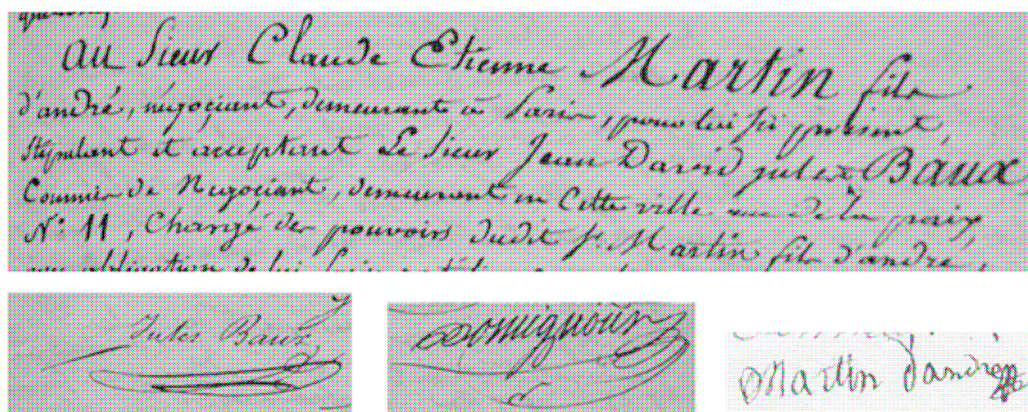 au Sieur Claude Etienne Martin fils
d'andré, négociant, demeurant à Paris, pour lui ici présent,
Stipulant et acceptant Le Sieur Jean David jules Baux
Commis de Négociant, demeurant en Cette ville rue de la paix
N.º 11, Chargé des pouvoirs dudit Sr. Martin fils d'andré,
obligation de lui
Jules Baux
Martin d'andré